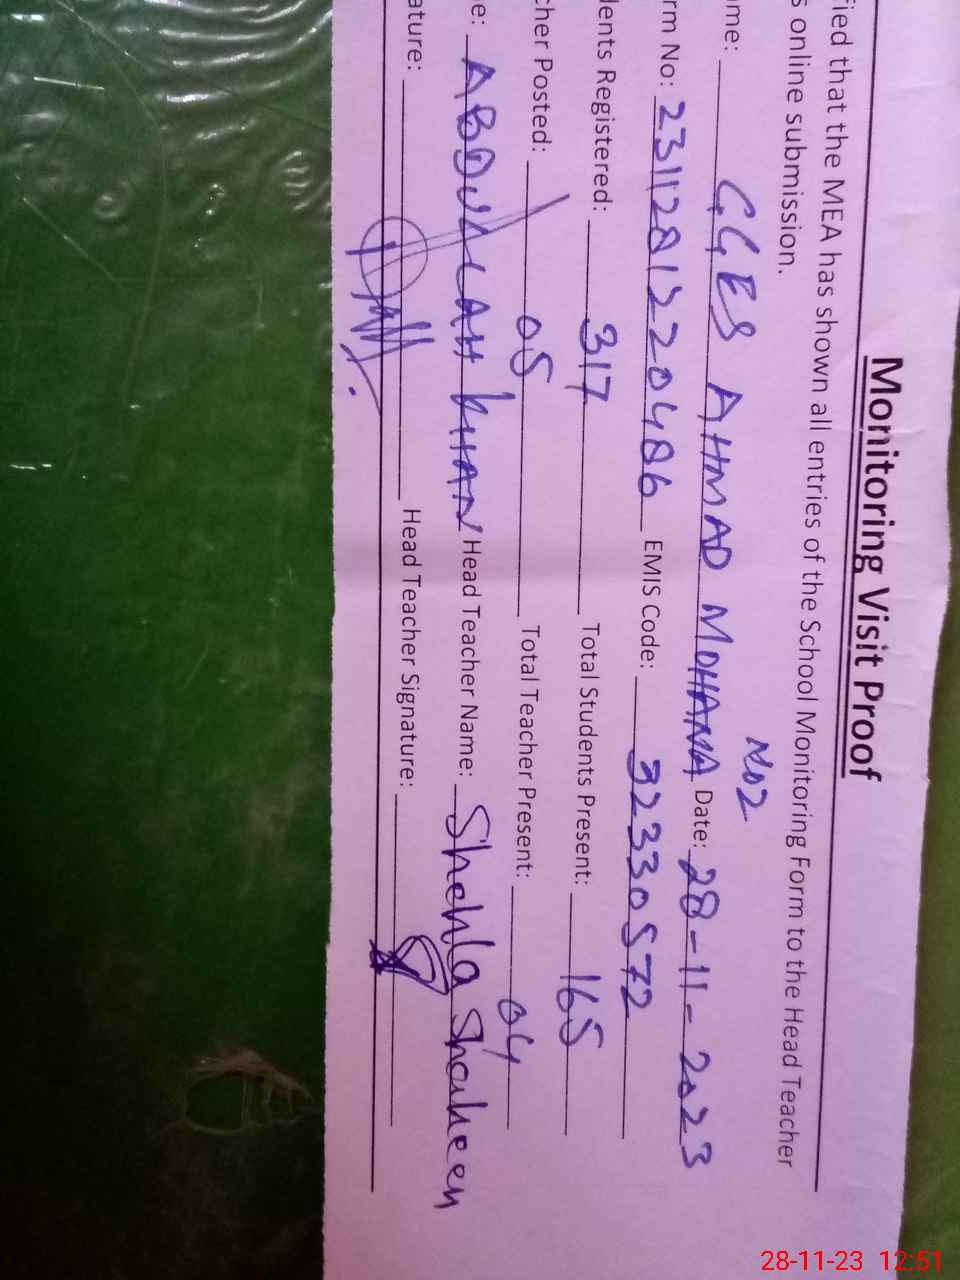 Monitoring Visit Proof
fied that the MEA has shown all entries of the School Monitoring Form to the Head Teacher
s online submission.
NO2
ame: GGES AHMAD MOHANA Date: 28-11-2023
rm No: EMIS Code: 32330572
dents Registered: 317 Total Students Present: 165
cher Posted: 05 Total Teacher Present: 04
e: ABDULLAH KHAN Head Teacher Name: Shehla Shaheen
ature: Head Teacher Signature:
28-11-23 12:51